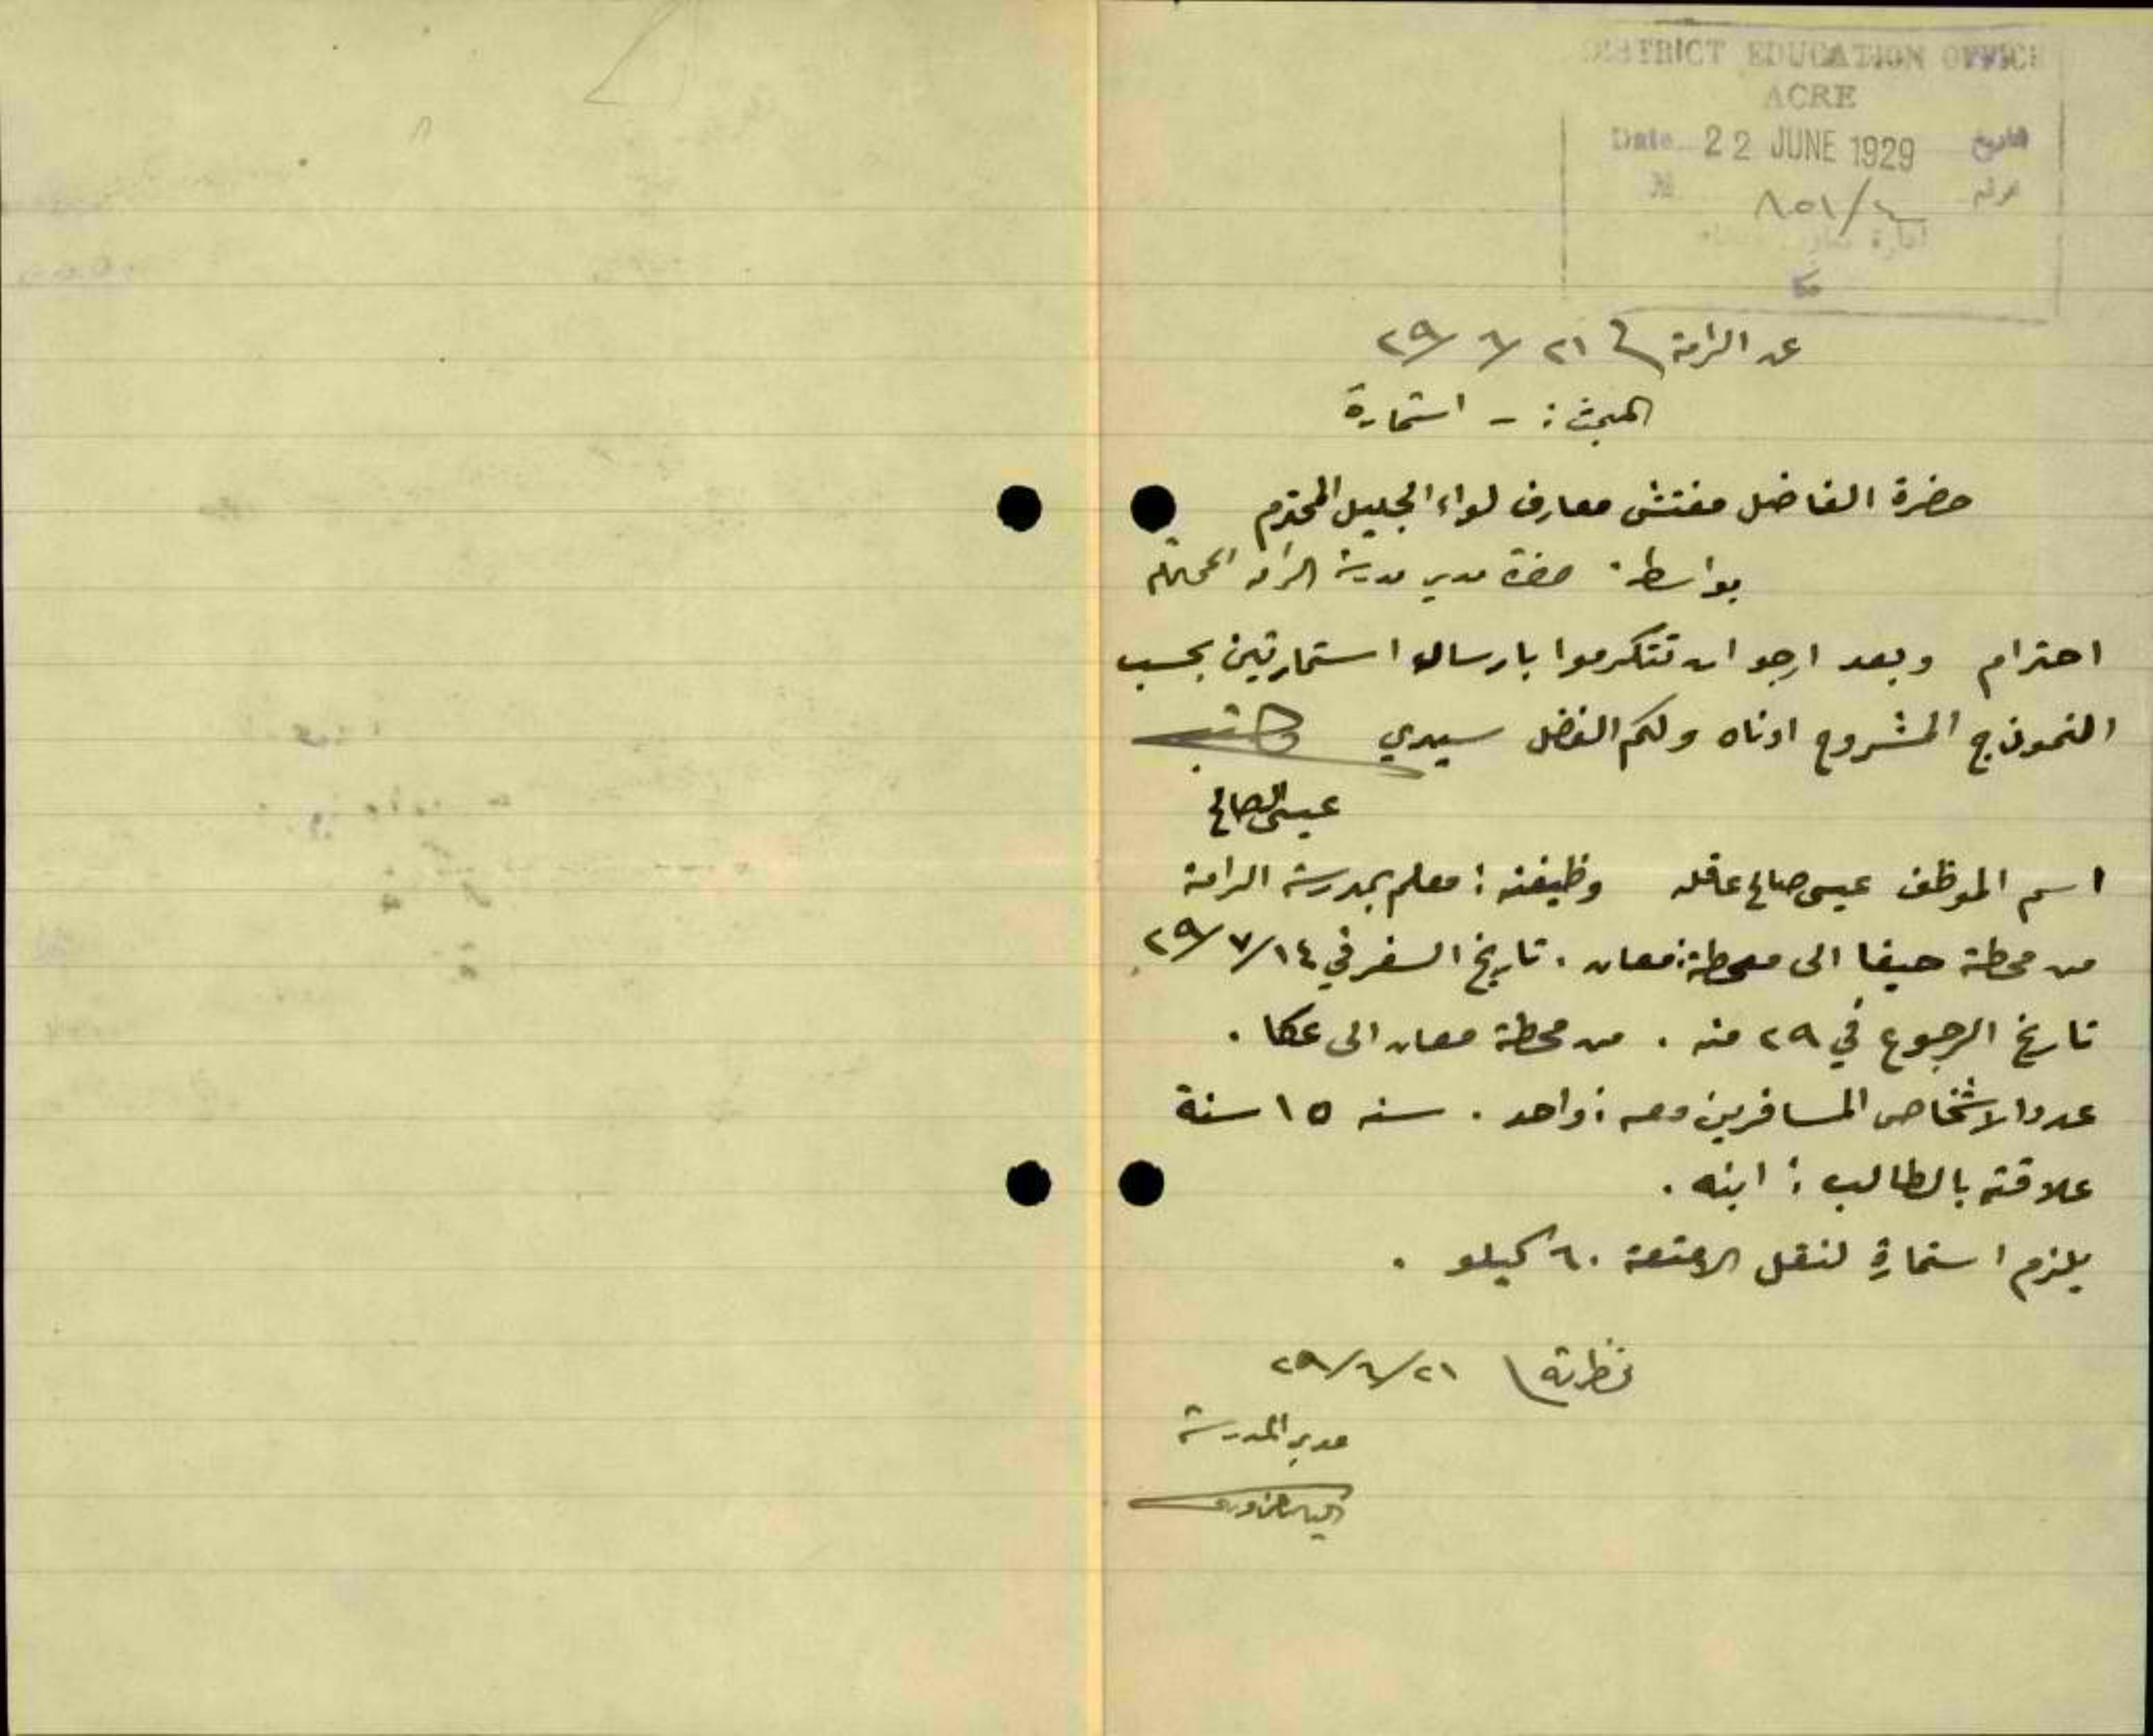 DISTRICT EDUCATION OFFICE
ACRE
Date 22 JUNE 1929 التاريخ
№ ٨٥١/ نمرة
ادارة معارف
عكا
عن الرامة ٢١ / ٦ / ٢٩
المبحث : - استمارة
حضرة الفاضل مفتش معارف لواء الجليل المحترم
بواسطة حضرة مدير مدرسة الرامة المحترم
احترام وبعد ارجو ان تتكرموا بارسال استمارتين بحسب
النموذج المشروح ادناه ولكم الفضل سيدي
عيسى الصالح
اسم الموظف عيسى صالح عاقله وظيفته : معلم بمدرسة الرامة
من محطة حيفا الى محطة معان . تاريخ السفر في ١٤ / ٧ / ٢٩
تاريخ الرجوع في ٢٩ منه . من محطة معان الى عكا .
عدد الاشخاص المسافرين معه : واحد . سنه ١٥ سنة
علاقته بالطالب : ابنه .
يلزم استمارة لنقل الامتعة ٦٠ كيلو .
نظرته ٢١ / ٦ / ٢٩
مدير المدرسة